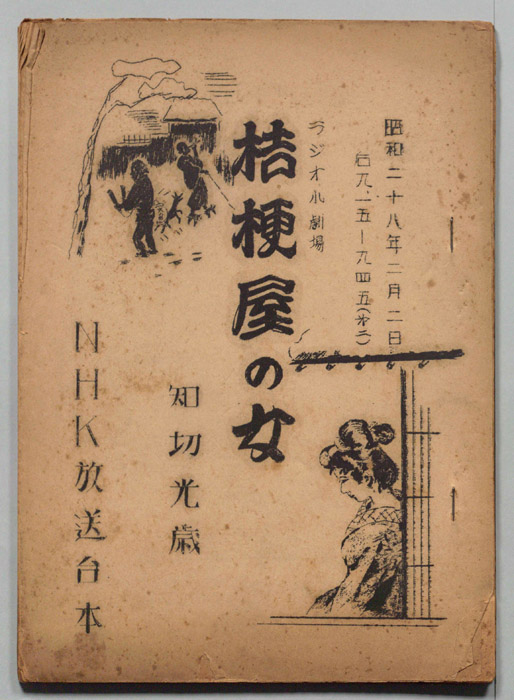 昭和二十八年二月二日
后九.一五－九四五(第二)
ラジオ小劇場
桔梗屋の女
知切光歳
NHK放送台本